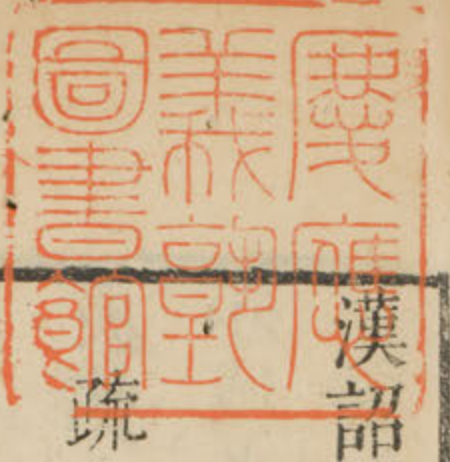 慶應
義塾
圖書館
漢詔
疏